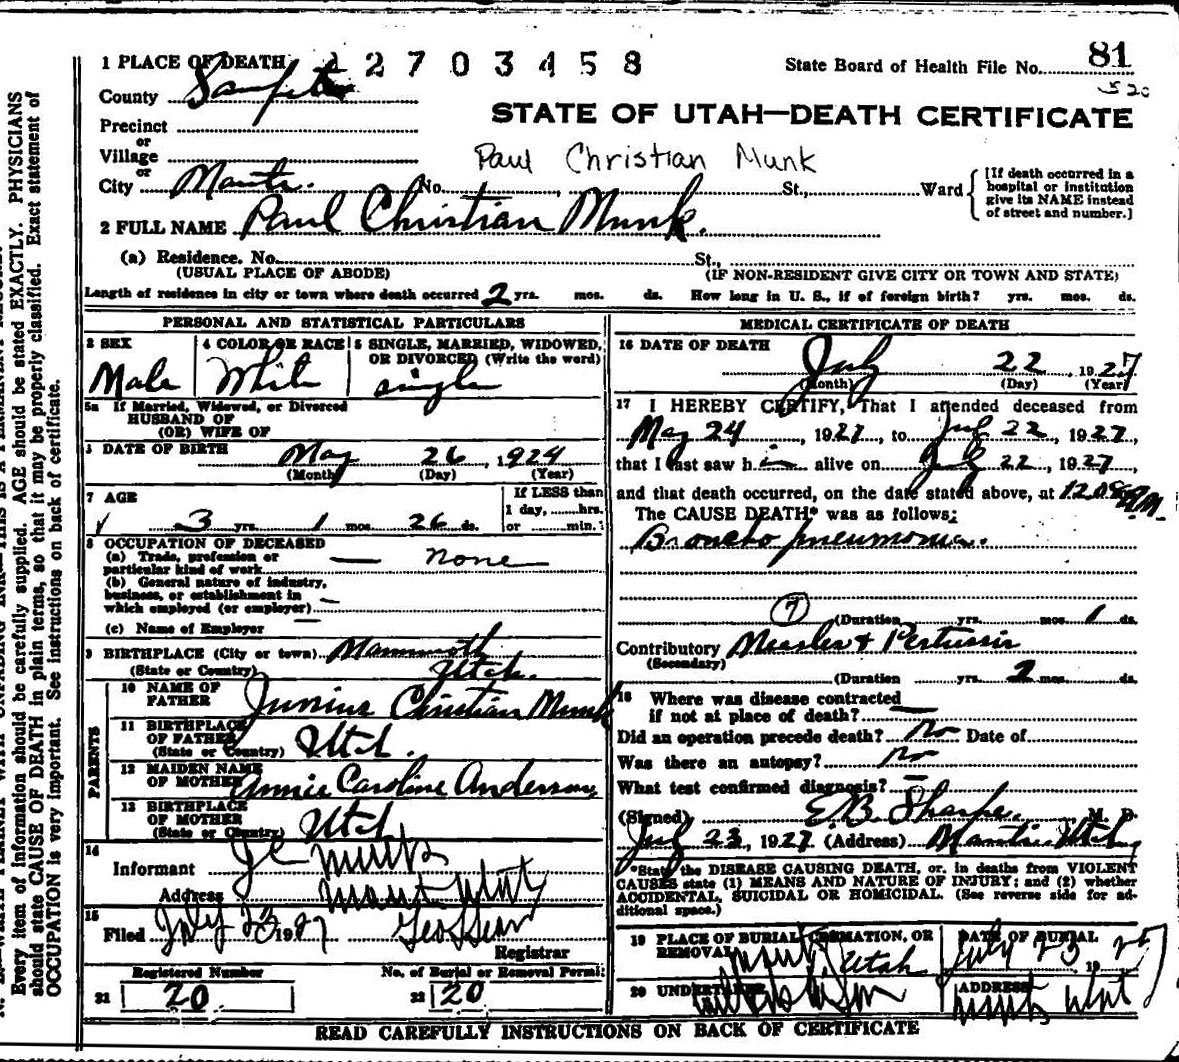 1 PLACE OF DEATH 12703458
State Board of Health File No. 81
520
County Sanpete
STATE OF UTAH—DEATH CERTIFICATE
Precinct
or
Village
Paul Christian Munk
or
City Manti. No. St., Ward
[If death occurred in a hospital or institution give its NAME instead of street and number.]
2 FULL NAME Paul Christian Munk.
(a) Residence. No. St.,
(USUAL PLACE OF ABODE) (IF NON-RESIDENT GIVE CITY OR TOWN AND STATE)
Length of residence in city or town where death occurred 2 yrs. mos. ds. How long in U. S., if of foreign birth? yrs. mos. ds.
PERSONAL AND STATISTICAL PARTICULARS
3 SEX 4 COLOR OR RACE 5 SINGLE, MARRIED, WIDOWED,
OR DIVORCED (Write the word)
Male White single
5a If Married, Widowed, or Divorced
HUSBAND OF
(OR) WIFE OF
DATE OF BIRTH May 26, 1924
(Month) (Day) (Year)
7 AGE
If LESS than
1 day, hrs.
or min.
3 yrs. 1 mos. 26 ds.
8 OCCUPATION OF DECEASED
(a) Trade, profession or
particular kind of work — none
(b) General nature of industry,
business, or establishment in
which employed (or employer) —
(c) Name of Employer —
9 BIRTHPLACE (City or town) Mammoth
(State or Country) Utah.
PARENTS
10 NAME OF
FATHER Junius Christian Munk
11 BIRTHPLACE
OF FATHER
(State or Country) Utah.
12 MAIDEN NAME
OF MOTHER Annie Caroline Anderson
13 BIRTHPLACE
OF MOTHER
(State or Country) Utah
14
Informant J C Munk
Address Manti Utah
15
Filed July 23 1927
Registrar
Registered Number No. of Burial or Removal Permit
21 20 22 20
MEDICAL CERTIFICATE OF DEATH
16 DATE OF DEATH
July 22, 1927
(Month) (Day) (Year)
17 I HEREBY CERTIFY, That I attended deceased from
May 24, 1927, to July 22, 1927,
that I last saw him alive on July 22, 1927,
and that death occurred, on the date stated above, at
The CAUSE DEATH* was as follows:
Broncho pneumonia.
7
(Duration yrs. mos. 1 ds.
Contributory Measles & Pertussis
(Secondary)
(Duration yrs. 2 mos. ds.
18 Where was disease contracted
if not at place of death? —
Did an operation precede death? no Date of
Was there an autopsy? no
What test confirmed diagnosis? —
(Signed) E.B. Sharpe. M. D.
July 23, 1927. (Address) Manti, Utah
*State the DISEASE CAUSING DEATH, or, in deaths from VIOLENT
CAUSES state (1) MEANS AND NATURE OF INJURY; and (2) whether
ACCIDENTAL, SUICIDAL OR HOMICIDAL. (See reverse side for additional space.)
19 PLACE OF BURIAL, CREMATION, OR
REMOVAL Manti Utah
DATE OF BURIAL
July 23 1927
20 UNDERTAKER
ADDRESS
Manti Utah
READ CAREFULLY INSTRUCTIONS ON BACK OF CERTIFICATE
Every item of information should be carefully supplied. AGE should be stated EXACTLY. PHYSICIANS
should state CAUSE OF DEATH in plain terms, so that it may be properly classified. Exact statement of
OCCUPATION is very important. See instructions on back of certificate.